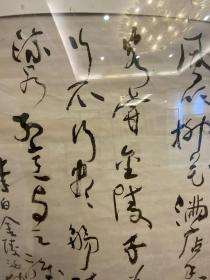 風吹柳花满店
客嘗金陵子
行不行各尽觴
流水别意与之
李白金陵酒